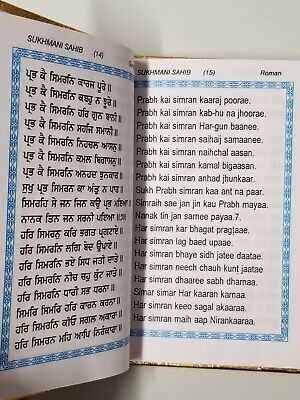 SUKHMANI SAHIB (14)
ਪ੍ਰਭ ਕੈ ਸਿਮਰਨਿ ਕਾਰਜ ਪੂਰੇ ॥
ਪ੍ਰਭ ਕੈ ਸਿਮਰਨਿ ਕਬਹੁ ਨ ਝੂਰੇ ॥
ਪ੍ਰਭ ਕੈ ਸਿਮਰਨਿ ਹਰਿ ਗੁਨ ਬਾਨੀ ॥
ਪ੍ਰਭ ਕੈ ਸਿਮਰਨਿ ਸਹਜਿ ਸਮਾਨੀ ॥
ਪ੍ਰਭ ਕੈ ਸਿਮਰਨਿ ਨਿਹਚਲ ਆਸਨੁ ॥
ਪ੍ਰਭ ਕੈ ਸਿਮਰਨਿ ਕਮਲ ਬਿਗਾਸਨੁ ॥
ਪ੍ਰਭ ਕੈ ਸਿਮਰਨਿ ਅਨਹਦ ਝੁਨਕਾਰ ॥
ਸੁਖੁ ਪ੍ਰਭ ਸਿਮਰਨ ਕਾ ਅੰਤੁ ਨ ਪਾਰ ॥
ਸਿਮਰਹਿ ਸੇ ਜਨ ਜਿਨ ਕਉ ਪ੍ਰਭ ਮਇਆ ॥
ਨਾਨਕ ਤਿਨ ਜਨ ਸਰਨੀ ਪਇਆ ॥
ਹਰਿ ਸਿਮਰਨੁ ਕਰਿ ਭਗਤ ਪ੍ਰਗਟਾਏ ॥
ਹਰਿ ਸਿਮਰਨਿ ਲਗਿ ਬੇਦ ਉਪਾਏ ॥
ਹਰਿ ਸਿਮਰਨਿ ਭਏ ਸਿਧ ਜਤੀ ਦਾਤੇ ॥
ਹਰਿ ਸਿਮਰਨਿ ਨੀਚ ਚਹੁ ਕੁੰਟ ਜਾਤੇ ॥
ਹਰਿ ਸਿਮਰਨਿ ਧਾਰੀ ਸਭ ਧਰਨਾ ॥
ਸਿਮਰਿ ਸਿਮਰਿ ਹਰਿ ਕਾਰਨ ਕਰਨਾ ॥
ਹਰਿ ਸਿਮਰਨਿ ਕੀਓ ਸਗਲ ਅਕਾਰਾ ॥
ਹਰਿ ਸਿਮਰਨ ਮਹਿ ਆਪਿ ਨਿਰੰਕਾਰਾ ॥
SUKHMANI SAHIB (15) Roman
Prabh kai simran kaaraj poorae.
Prabh kai simran kab-hu na jhoorae.
Prabh kai simran Har-gun baanee.
Prabh kai simran saihaj samaanee.
Prabh kai simran naihchal aasan.
Prabh kai simran kamal bigaasan.
Prabh kai simran anhad jhunkaar.
Sukh Prabh simran kaa ant na paar.
Simraih sae jan jin kau Prabh mayaa.
Nanak tin jan sarnee payaa.7.
Har simran kar bhagat pragtaae.
Har simran lag baed upaae.
Har simran bhaye sidh jatee daatae.
Har simran neech chauh kunt jaatae
Har simran dhaaree sabh dharnaa.
Simar simar Har kaaran karnaa.
Har simran keeo sagal akaaraa.
Har simran maih aap Nirankaaraa.